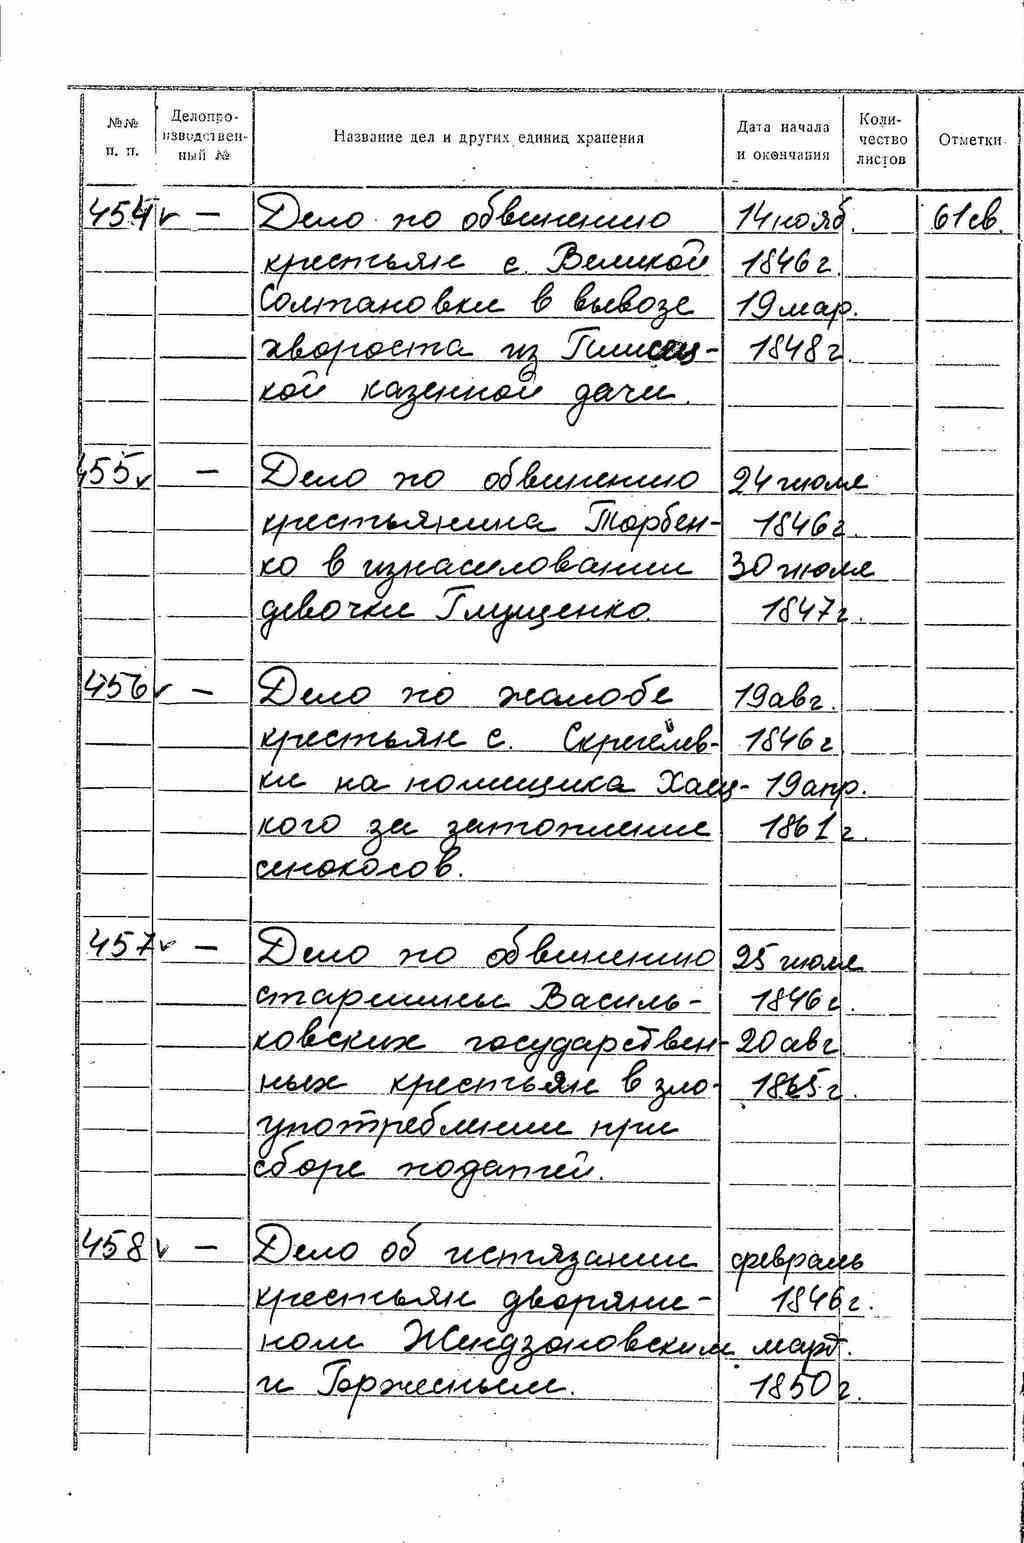 №№ п. п.
Делопро-изводствен-ный №
Название дел и других единиц хранения
Дата начала и окончания
Коли-чество листов
Отметки
454 v — Дело по обвинению 14 нояб. 61 св.
крестьян с. Великой 1846 г.
Солтановки в вывозе 19 мар.
хвороста из Плисец- 1848 г.
кой казенной дачи.
455 v — Дело по обвинению 24 июля
крестьянина Торбен- 1846 г.
ко в изнасиловании 30 июля
девочки Глущенко. 1847 г.
456 v — Дело по жалобе 19 авг.
крестьян с. 1846 г
ки на помещика Хаец- 19 апр.
кого за затопление 1861 г.
сенокосов.
457 v — Дело по обвинению 25 июля
старшины Василь- 1846 г.
ковских государствен- 20 авг
ных крестьян в зло- 1865 г.
употреблении при
сборе податей.
458 v — Дело об истязании февраль
крестьян дворяни- 1846 г.
ном март.
и Горженым. 1850 г.